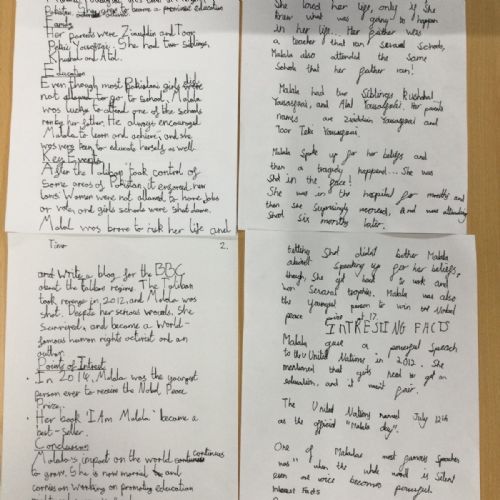 Pakistan. She aims to become a prominent education
Family
Her parents were Ziauddin and Toor
Pekai Yousafzai. She had two siblings,
Khushal and Atal.
Education
Even though most Pakistani girls
not allowed to go to school, Malala
was lucky to attend one of the schools
ran by her father. He always encouraged
Malala to learn and achieve; and she
was very keen to educate herself as well.
Key Events
After the Taliban took control of
some areas of Pakistan, it enforced new
laws. Women were not allowed to have jobs
or vote, and girls schools were shut down.
Malal was brave to risk her life and
Tino
2.
and write a blog for the BBC
about the taliban regime. The Taliban
took regime in 2012, and Malala was
shot. Despite her serious wounds, She
survived, and became a world-
famous human rights activist and an
author.
Points of Intrest
• In 2014, Malala was the youngest
person ever to receive the Nobel Peace
Prize.
• Her book 'I Am Malala' became a
best-seller.
Conclusion
Malala's impact on the world continues
to grow. She is now married and
carries on working on promoting education
She loved her life, only if she
knew what was going to happen
in her life. Her father was
a teacher that ran several schools,
Malala also attended the same
Schools that her father ran!
Malala had two Siblings Kushal
Yousafzai, and Atal Yousafzai. Her parents
names are Ziauddin Yousafzai and
Toor Pekai Yousafzai.
Malala Spoke up for her beliefs and
then a tragedy happend... She was
Shot in the face!
She was in the hospital for months and
then she surprisingly recovered, and was attending
shool six months later.
Getting Shot didn't bother Malala
about Speaking up for her beliefs,
though, She got back to work and
won Several trophies. Malala was also
the youngest person to win the Nobel
peace prize at 17.
INTRESTING FACTS
Malala gave a powerful speech
to the United Nations in 2012. She
mentioned that girls need to get an
education, and it wasnt fair.
The United Nations named July 12th
as the official "Malala day".
One of Malalas most famous Speeches
was "when the whole world is Silent
even one voice becomes powerful
Interest Facts